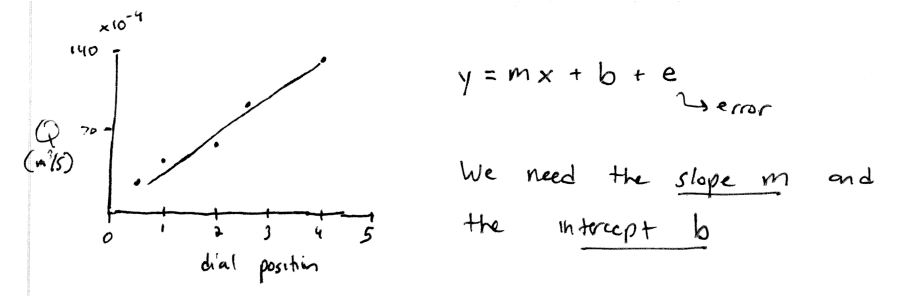 ×10⁻⁴
140
70
Q
(m³/s)
0 1 2 3 4 5
dial position
y = mx + b + e
↳ error
We need the slope m and
the intercept b